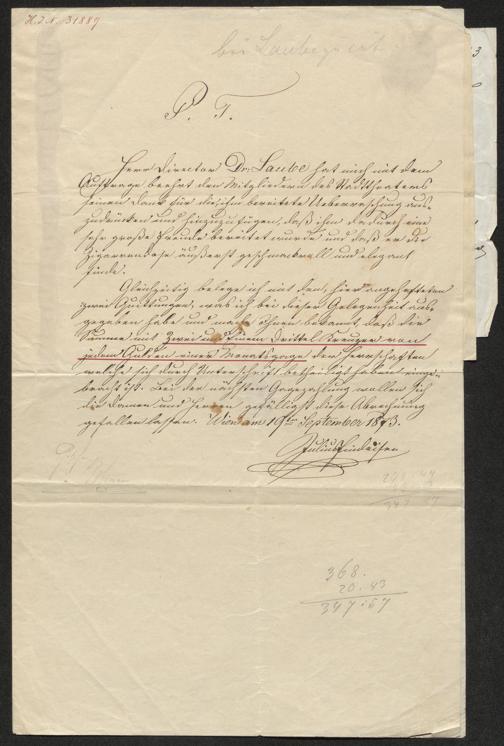 H.I.N. 31889
P. T.
Herr Director Dr. Laube hat mich mit dem
Auftrage beehrt den Mitgliedern des Stadttheaters
seinen Dank für die ihm bereitete Ueberraschung aus-
zudrücken und hinzuzufügen, daß ihm dadurch eine
sehr große Freude bereitet wurde und daß er die
Zigarrendose äußerst geschmackvoll und elegant
finde.
Gleichzeitig belege ich mit den, hier angehefteten
zwei Quittungen, was ich bei dieser Gelegenheit aus-
gegeben habe und mache Ihnen bekannt, daß die
Summe mit zwei und einem Drittel Kreuzer von
jedem Gulden einer Monatsgage den Herrschaften
welche sich durch Unterschrift betheiligt haben einge-
bracht ist. Bei der nächsten Gagezahlung wollen sich
die Damen und Herren gefälligst diese Abrechnung
gefallen lassen. Wien am 19ten September 1873.
Julius Findeisen
368.
20.43
347.57